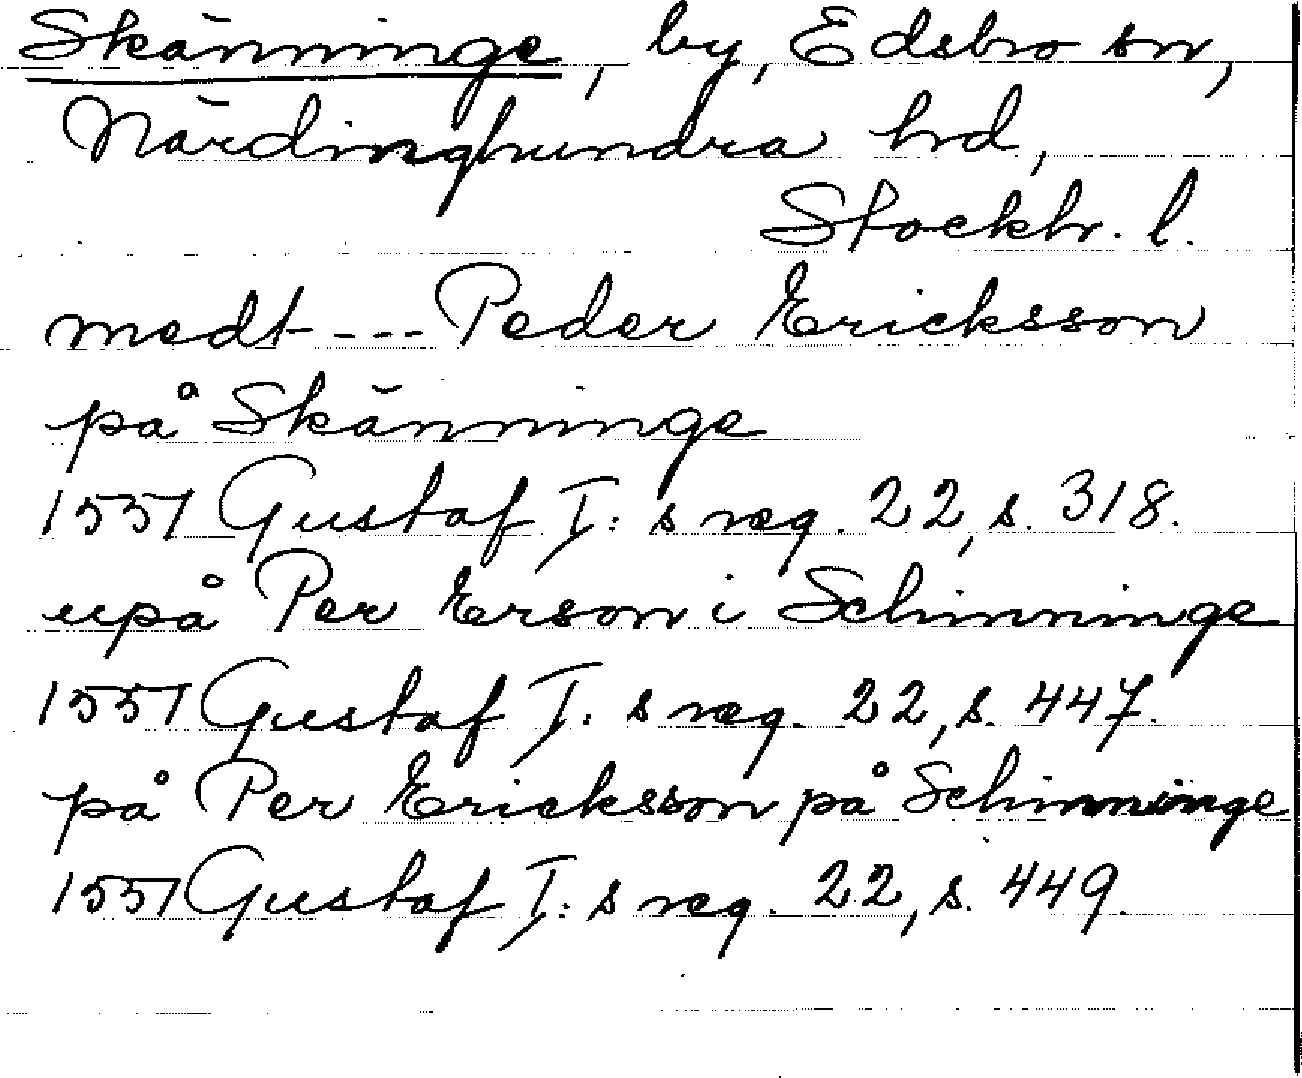 Skänninge, by, Edsbro sn,
Närdinghundra hd,
Stockh. l.
medt --- Peder Ericksson
på Skänninge
1551 Gustaf I:s reg. 22, s. 318.
uppå Per Erson i Schinninge
1551 Gustaf I:s reg. 22, s. 447.
på Per Ericksson på Schinninge
1551 Gustaf I:s reg. 22, s. 449.